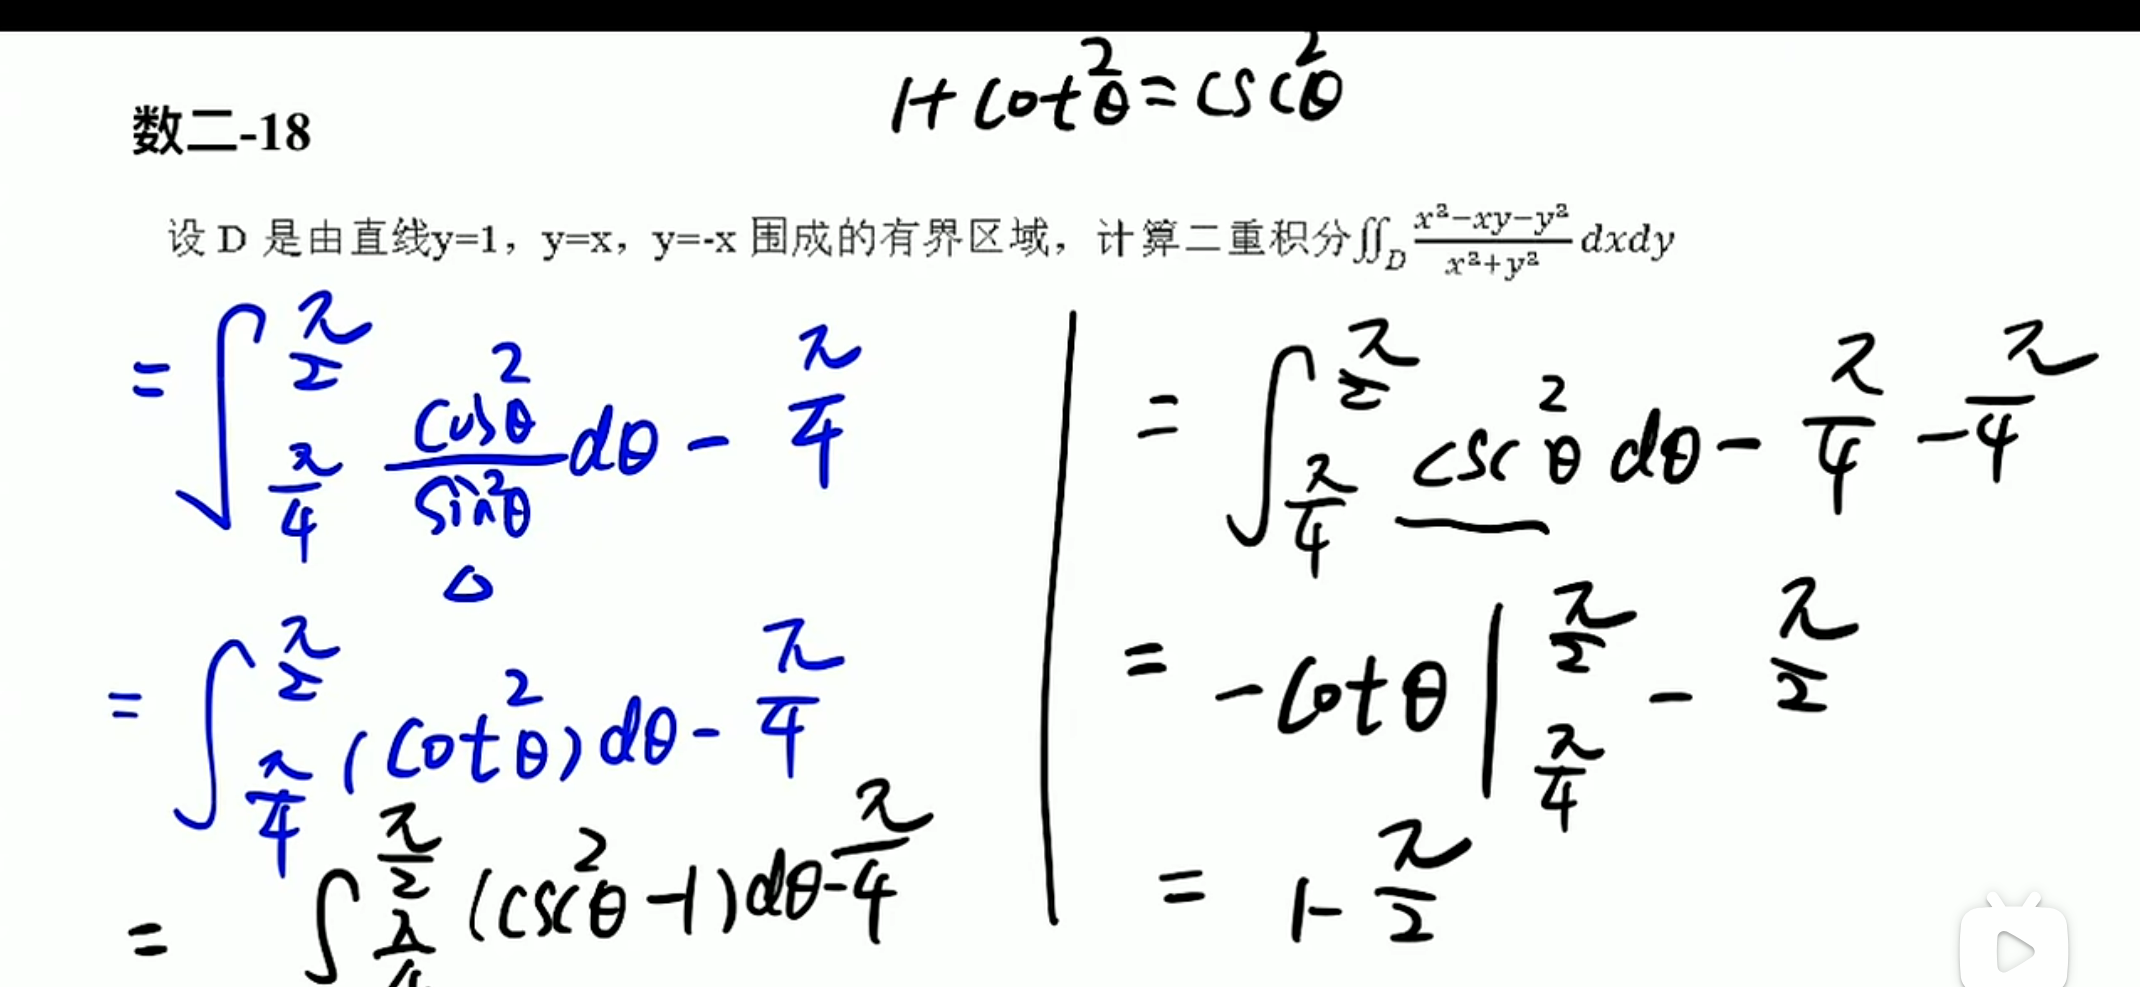 1+cot²θ=csc²θ
数二-18
设 D 是由直线y=1，y=x，y=-x 围成的有界区域，计算二重积分∬_D (x²-xy-y²)/(x²+y²) dxdy
=∫_{π/4}^{π/2} cos²θ/sin²θ dθ - π/4
=∫_{π/4}^{π/2} (cot²θ)dθ - π/4
=∫_{π/4}^{π/2} (csc²θ-1)dθ - π/4
=∫_{π/4}^{π/2} csc²θ dθ - π/4 - π/4
=-cotθ|_{π/4}^{π/2} - π/2
=1-π/2